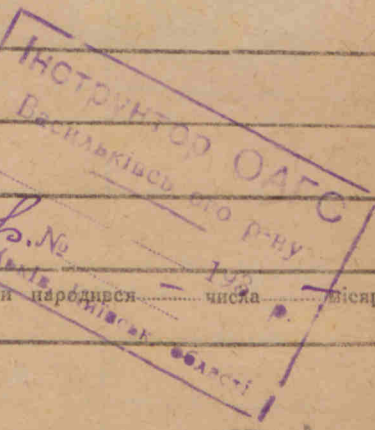 Інструктор ОАГС
Васильківського р-ну
№
193 р.
Київськ області
народився числа